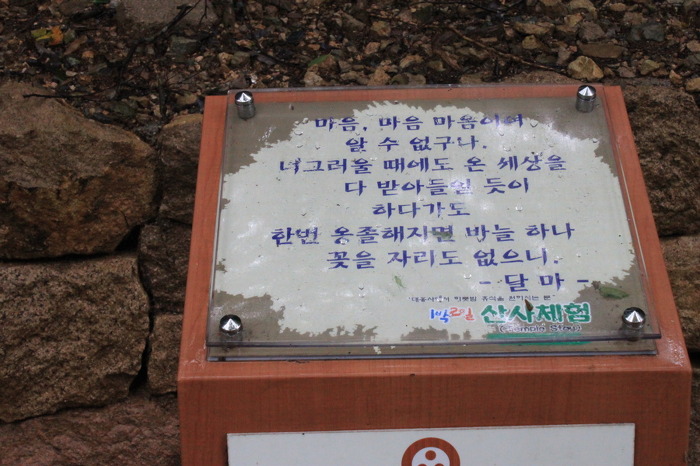 마음, 마음 마음이여
알 수 없구나.
너그러울 때에도 온 세상을
다 받아들일 듯이
하다가도
한번 옹졸해지면 바늘 하나
꽂을 자리도 없으니.
- 달 마 -
1박2일 산사체험
(Temple Stay)